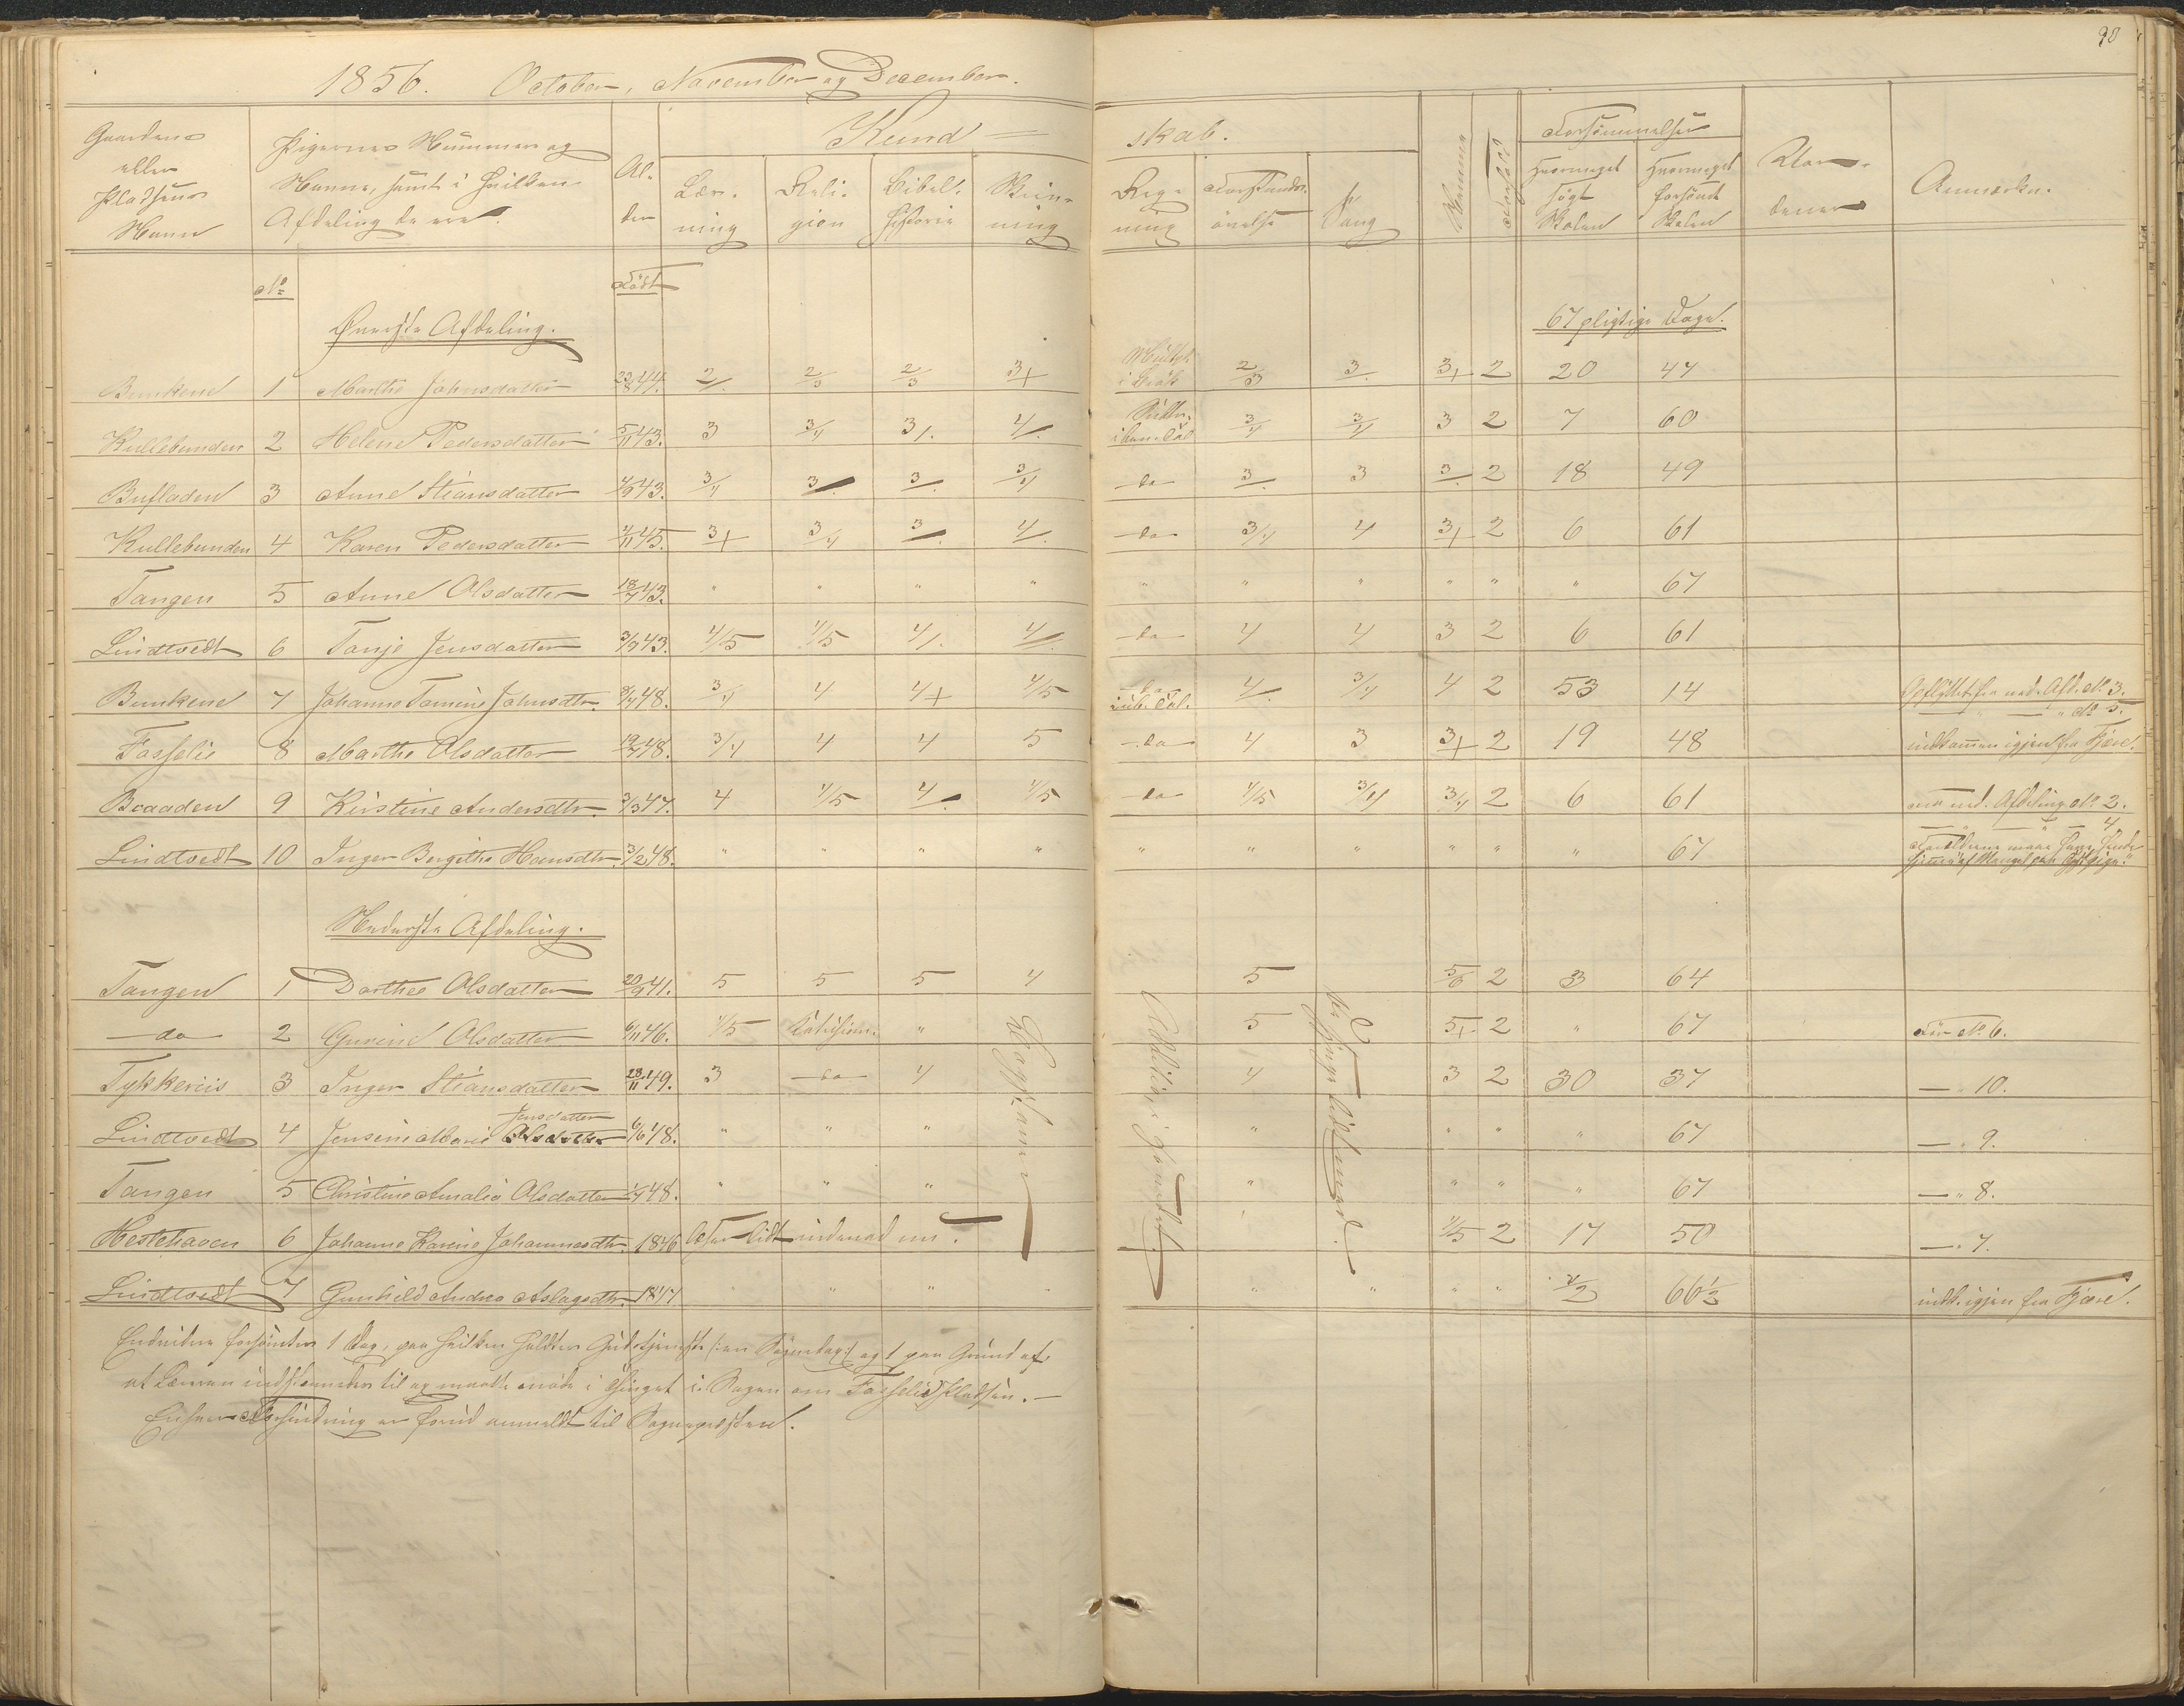 90
1856. October, November og December.
Gaardens eller Pladsens Navn
Pigernes Nummer og Navne, samt i hvilken Afdeling de ere.
Alder
Kundskab.
Læsning
Religion
Bibelhistorie
Skrivning
Regning
Forstandsøvelse
Sang
Nemme
Forhold
Forsømmelser
Hvormeget søgt Skolen
Hvormeget forsømt Skolen
Anmærkn.
No
Født
Øverste Afdeling.
67 pligtige Dage.
Bunkene 1 Marthe Johnsdatter 23/8 44. 2/. 2/3 2/3 3+ 2/3 3/. 3+ 2 20 47
Kullebunden 2 Helene Pedersdatter 5/11 43. 3 3/4 3/. 4/. 3/4 3/4 3 2 7 60
Bufladen 3 Anne Stiansdatter 4/9 43. 3/4 3/. 3/. 3/4 do 3/. 3 3/. 2 18 49
Kullebunden 4 Karen Pedersdatter 4/11 45. 3+ 3/4 3/. 4/. do 3/4 4 3+ 2 6 61
Tangen 5 Anne Olsdatter 18/7 43. " " " " " " " " " " 67
Lindtvedt 6 Tanje Jensdatter 3/9 43. 4/5 4/5 4/. 4/. do 4 4 3 2 6 61
Bunkene 7 Johanne Tomine Johnsdtr. 48. 3/4 4 4+ 4/5 do 4/. 3/4 4 2 53 14 Opflyttet fra ned. Afd. No 3.
" No 5.
Fosselie 8 Marthe Olsdatter 19/7 48. 3/4 4 4 5 do 4 3 3+ 2 19 48 indkommen igjen fra Fjære.
Braaden 9 Kirstine Andersdtr. 3/3 47. 4 4/5 4/. 4/5 do 4/5 3/4 3/4 2 6 61 ned. Afdeling No 2.
" 4
Lindtvedt 10 Inger Bergithe Hansdtr. 3/2 48. " " " " " " " " " " 67 Forældrene maae have hende
hjemme af Mangel paa Tjenestepige."
Nederste Afdeling.
Tangen 1 Dorthea Olsdatter 20/9 41. 5 5 5 4 5 5/6 2 3 64
do 2 Gurine Olsdatter 6/11 46. 4/5 Catechism. " 5 5+ 2 " 67 Før No 6.
Tykkeriis 3 Inger Stiansdatter 28/11 49. 3 do 4 4 3 2 30 37 — " 10.
Lindtvedt 4 Jensine Marie Olsdatter Jensdatter 6/6 48. " " " " " " " 67 — " 9.
Tangen 5 Christine Amalie Olsdatter 1/7 48. " " " " " " " 67 — " 8.
Hestehaven 6 Johanne Karine Johannesdtr. 1846 læser lidt indenad nu. " 4/5 2 17 50 — " 7.
Lindtvedt 7 Gunhild Andrea Aslagsdtr. 1847 " " " " " " " " 1/2 66 1/2 indk. igjen fra Fjære.
Endvidere forsømtes 1 Dag, paa hvilken holdtes Gudstjeneste (: en Søgnedag :) og 1 paa Grund af
at Læreren indstævnedes til og maatte møde i Thinget i Sagen om Fosselie Pladsen. —
Enhver Forhindring er forud anmeldt til Sognepræsten.